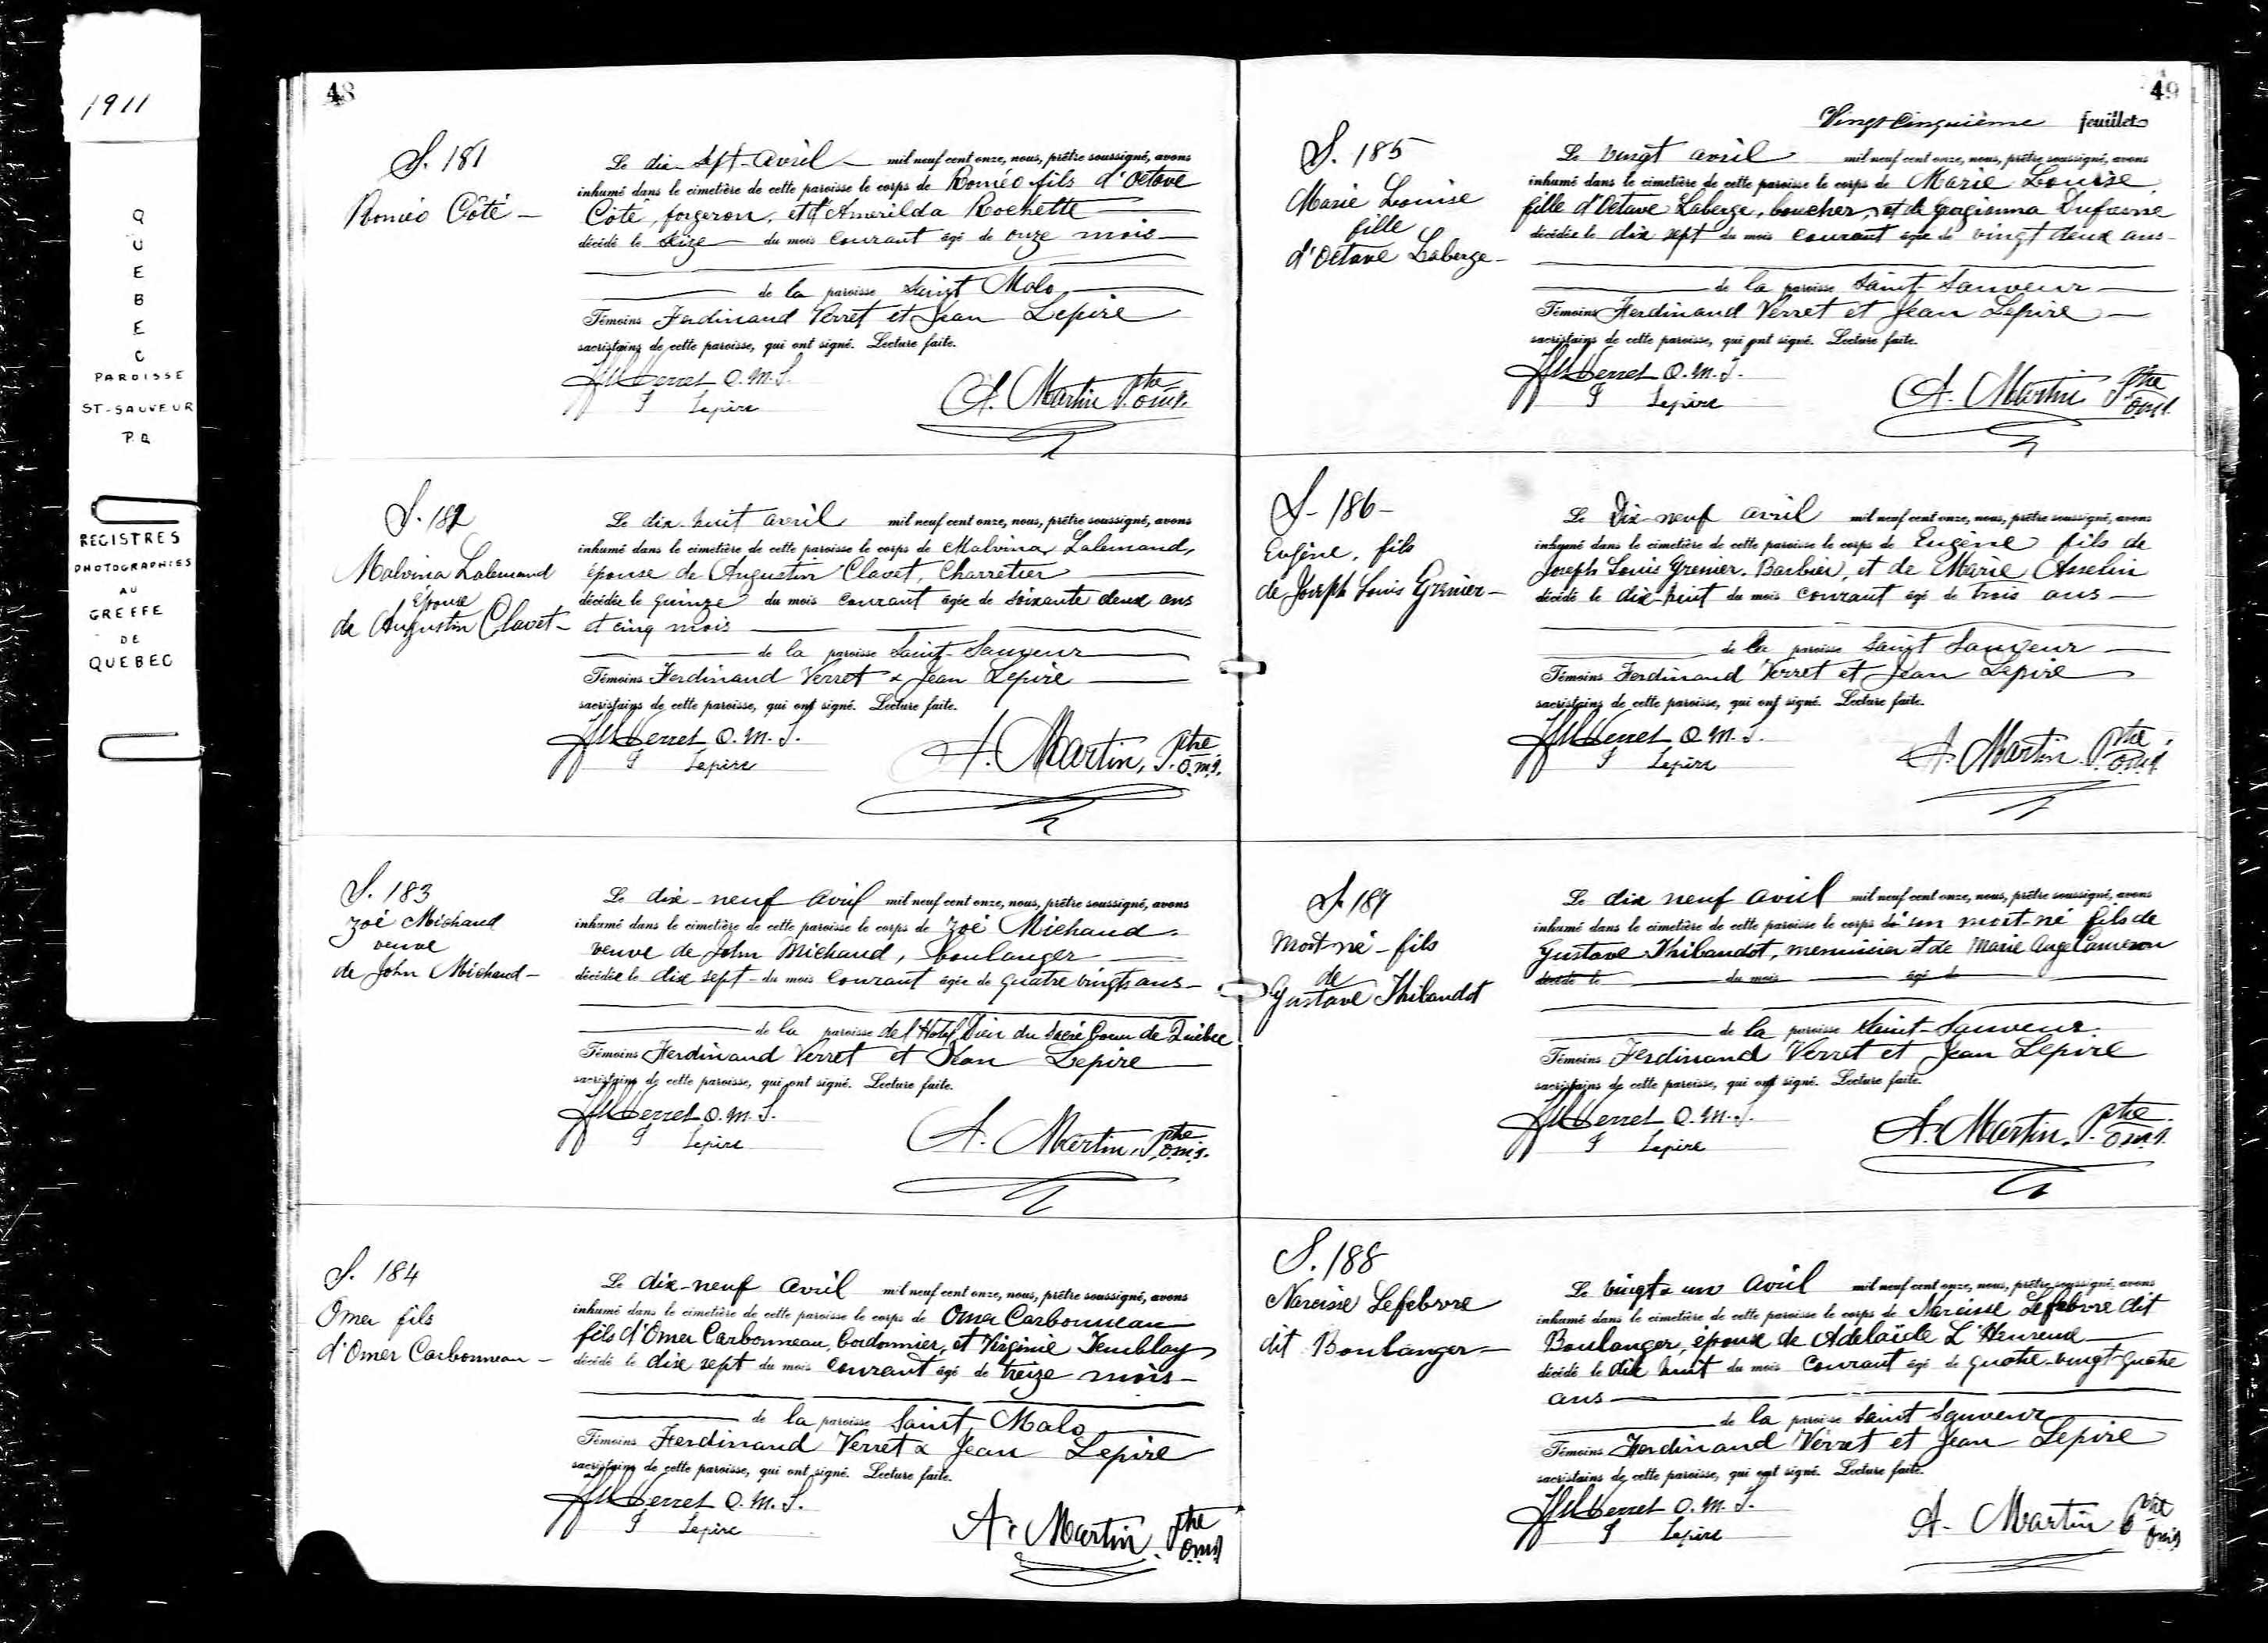 1911
QUEBEC
PAROISSE
ST-SAUVEUR
P.Q
REGISTRES
PHOTOGRAPHIES
AU
GREFFE
DE
QUEBEC
48
S. 181
Roméo Côté —
Le dix-sept avril — mil neuf cent onze, nous, prêtre soussigné, avons
inhumé dans le cimetière de cette paroisse le corps de Roméo fils d'Octave
Côté, forgeron, et d'Amerilda Rochette —
décédé le seize — du mois courant âgé de onze mois —
de la paroisse Saint Malo
Témoins Ferdinand Verret et Jean Lepire
sacristains de cette paroisse, qui ont signé. Lecture faite.
Verret O.M.I.
J Lepire
A. Martin Ptre
o.m.i.
S. 182
Malvina Lalemand
Epouse
de Augustin Clavet —
Le dix-huit avril mil neuf cent onze, nous, prêtre soussigné, avons
inhumé dans le cimetière de cette paroisse le corps de Malvina Lalemand,
épouse de Augustin Clavet, Charretier
décédée le quinze du mois courant âgée de soixante deux ans
et cinq mois
de la paroisse Saint-Sauveur
Témoins Ferdinand Verret & Jean Lepire
sacristains de cette paroisse, qui ont signé. Lecture faite.
Verret O.M.I.
J Lepire
A. Martin, Ptre
o.m.i.
S. 183
Zoé Michaud
veuve
de John Michaud —
Le dix-neuf avril mil neuf cent onze, nous, prêtre soussigné, avons
inhumé dans le cimetière de cette paroisse le corps de Zoé Michaud
veuve de John Michaud, boulanger
décédée le dix sept - du mois courant âgée de quatre vingts ans —
de la paroisse de l'Hotel Dieu du Sacré Coeur de Québec
Témoins Ferdinand Verret et Jean Lepire
sacristains de cette paroisse, qui ont signé. Lecture faite.
Verret O.M.I.
J Lepire
A. Martin, Ptre
o.m.i.
S. 184
Omer fils
d'Omer Carbonneau —
Le dix-neuf avril mil neuf cent onze, nous, prêtre soussigné, avons
inhumé dans le cimetière de cette paroisse le corps de Omer Carbonneau
fils d'Omer Carbonneau, Cordonnier, et Virginie Tremblay
décédé le dix sept du mois courant âgé de treize mois —
de la paroisse Saint Malo
Témoins Ferdinand Verret & Jean Lepire
sacristains de cette paroisse, qui ont signé. Lecture faite.
Verret O.M.I.
J Lepire
A. Martin Ptre
o.m.i.
49
Vingt-Cinquième feuillet
S. 185
Marie Louise
fille
d'Octave Laberge —
Le vingt avril mil neuf cent onze, nous, prêtre soussigné, avons
inhumé dans le cimetière de cette paroisse le corps de Marie Louise
fille d'Octave Laberge, boucher, et de
décédée le dix sept du mois courant âgée de vingt deux ans —
de la paroisse Saint-Sauveur
Témoins Ferdinand Verret et Jean Lepire —
sacristains de cette paroisse, qui ont signé. Lecture faite.
Verret O.M.I.
J Lepire
A. Martin Ptre
o.m.i.
S - 186 -
Eugène, fils
de Joseph Louis Grenier —
Le Dix-neuf avril mil neuf cent onze, nous, prêtre soussigné, avons
inhumé dans le cimetière de cette paroisse le corps de Eugène fils de
Joseph Louis Grenier, Barbier, et de Marie Asselin
décédé le dix-huit du mois courant âgé de trois ans —
de la paroisse Saint Sauveur
Témoins Ferdinand Verret et Jean Lepire
sacristains de cette paroisse, qui ont signé. Lecture faite.
Verret O.M.I.
J Lepire
A. Martin Ptre
o.m.i.
S. 187
Mort-né - fils
de
Gustave Thibaudot
Le dix neuf avril mil neuf cent onze, nous, prêtre soussigné, avons
inhumé dans le cimetière de cette paroisse le corps d'un mort-né fils de
Gustave Thibaudot, menuisier et de Marie Ange Cameron
décédé le du mois âgé de
de la paroisse Saint-Sauveur
Témoins Ferdinand Verret et Jean Lepire
sacristains de cette paroisse, qui ont signé. Lecture faite.
Verret O.M.I.
J Lepire
A. Martin. Ptre
o.m.i.
S. 188
Narcisse Lefebvre
dit Boulanger —
Le vingt & un avril mil neuf cent onze, nous, prêtre soussigné, avons
inhumé dans le cimetière de cette paroisse le corps de Narcisse Lefebvre dit
Boulanger, époux de Adelaïde L'Heureux
décédé le dix huit du mois courant âgé de quatre-vingt-quatre
ans
de la paroisse Saint Sauveur
Témoins Ferdinand Verret et Jean Lepire
sacristains de cette paroisse, qui ont signé. Lecture faite.
Verret O.M.I.
J Lepire
A. Martin Ptre
o.m.i.